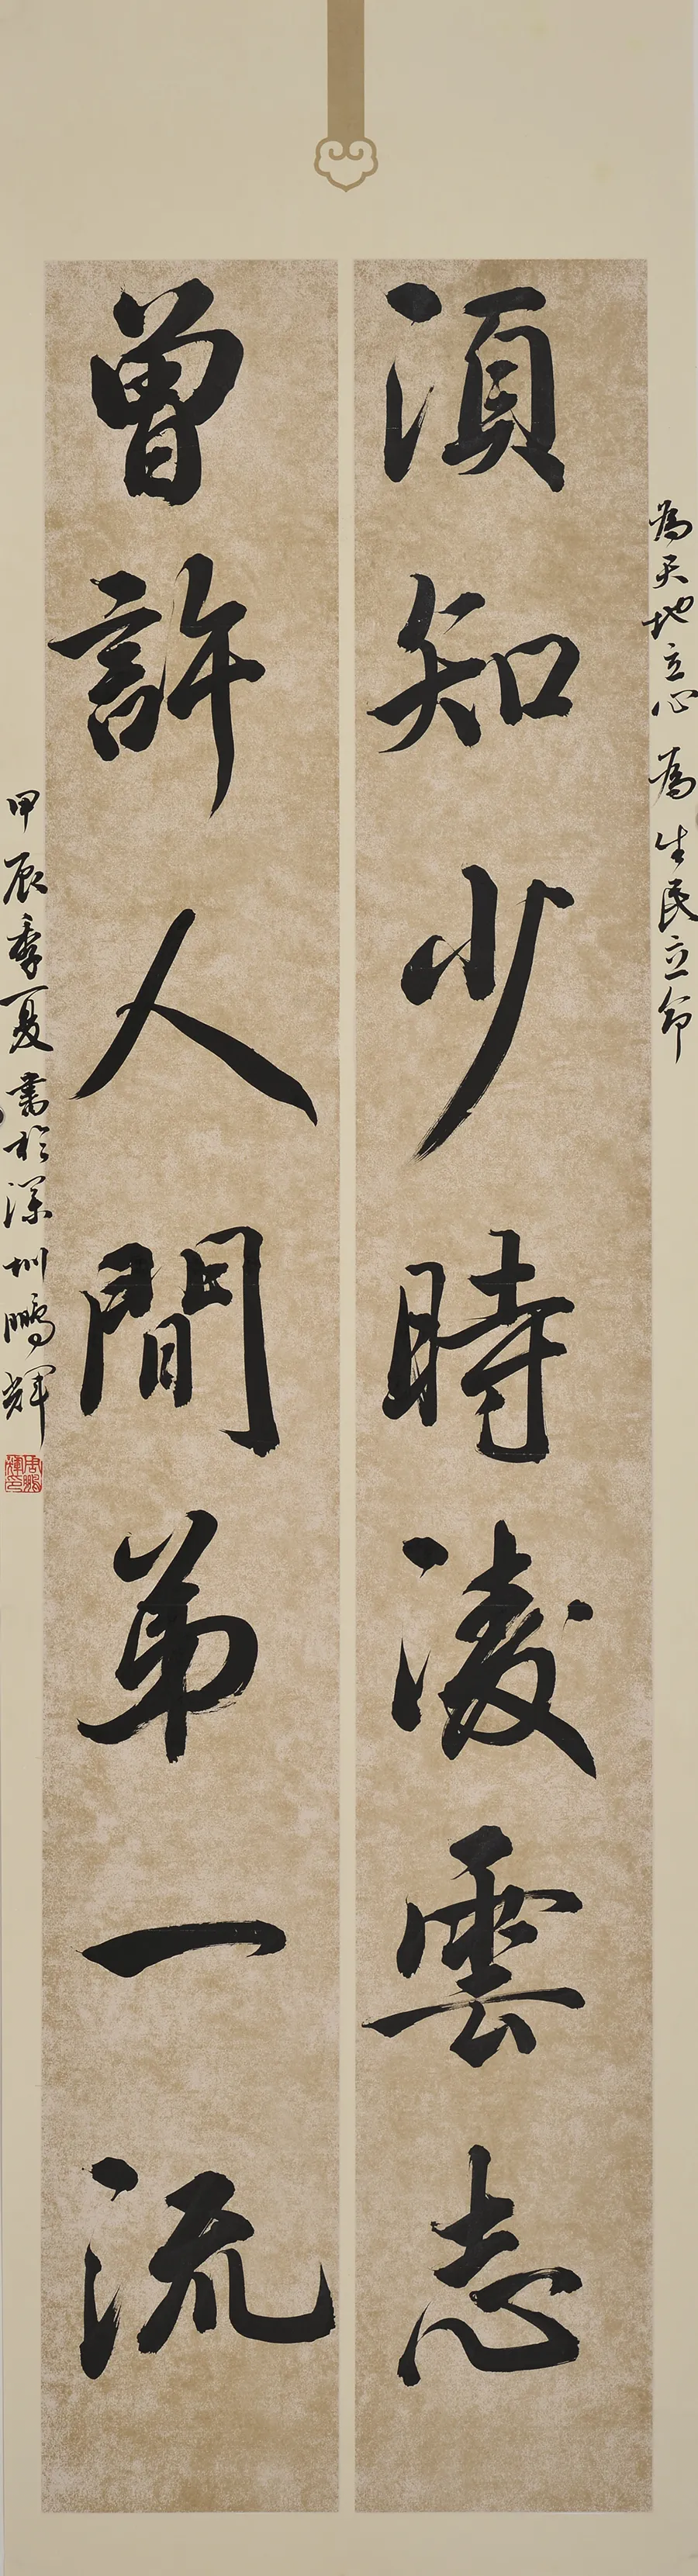 為天地立心為生民立命
須知少時凌雲志
曾許人間弟一流
甲辰季夏書於深圳鵬輝
周鵬輝印